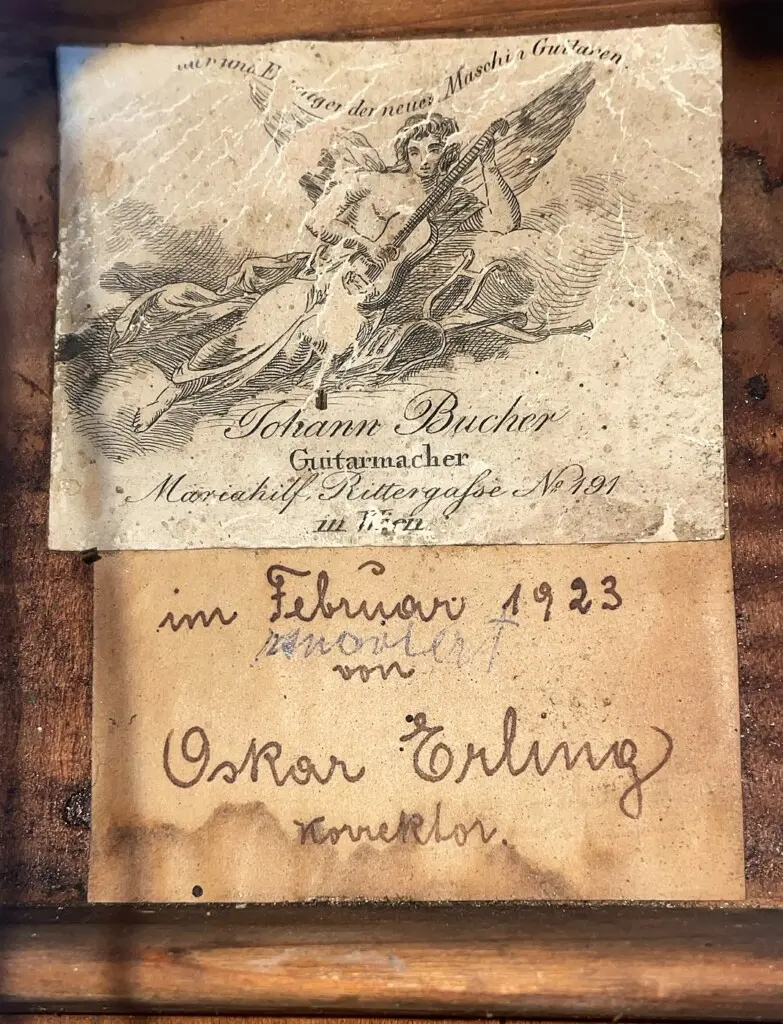 der neuen Maschin Guitaren.
Johann Bucher
Guitarmacher
Mariahilf, Rittergasse No 191
in Wien
im Februar 1923
renoviert
von
Oskar Erling
Korrektor.